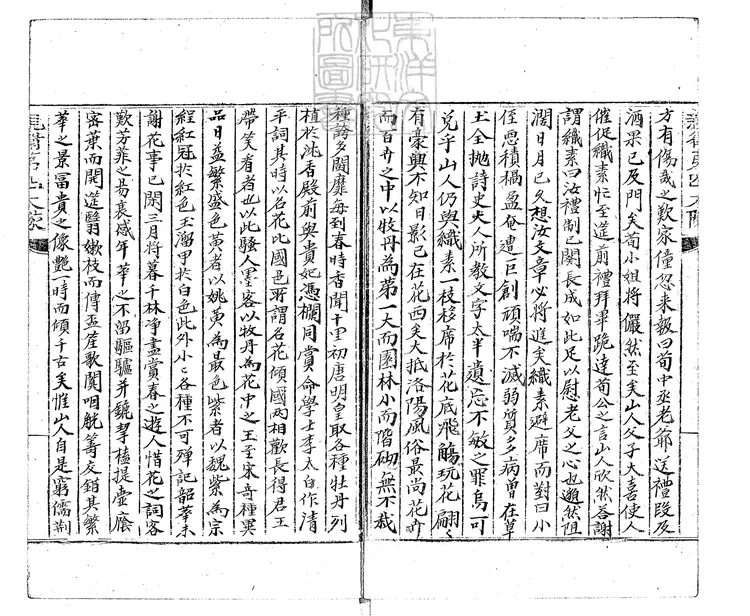 方有傷哉之歎家僮忽來報曰荀中丞老爺送禮段及
酒果已及門矣荀小姐將儼然至矣山人父子大喜使人
催促纖素忙至筵前禮拜畢跪達荀公之言山人欣然答謝
謂纖素曰汝禮制已闋長成如此足以慰老父之心也邈然阻
濶日月已久想汝文章必將進矣纖素避席而對曰小
侄惡積禍盈奄遭巨創頑喘不滅弱質多病曾在草
土全拋詩史大人所教文字太半遺忘不敏之罪烏可
兌乎山人仍與纖素一枝移席於花底飛觴玩花翩〻
有豪興不知日影已在花西矣大抵洛陽風俗最尚花卉
而百卉之中以牧丹為第一大而園林小而階砌無不栽
種論多鬪靡每到春時香聞十里初唐明皇取各種牡丹列
植於沈香殿前與貴妃憑欄同賞命學士李太白作清
平詞其時以名花比國色所謂名花傾國兩相歡長得君王
帶笑看者也以此騷人墨客以牧丹為花中之王至宋奇種異
品日益繁盛色黃者以姚黃為最色紫者以魏紫為宗
經紅冠於紅色玉溜甲於白色此外小〻各種不可殫記韶華未
謝花事已閑三月將暮千林凈盡賞春之遊人惜花之詞客
歎芳菲之易衰感年華之不留驅驢并轡挈榼提壺蔭
密葉而開筵翳嫩枝而傳盃笙歌闐咽觥籌交錯其繁
華之景富貴之像艶一時而傾千古矣惟山人自是窮儒荊